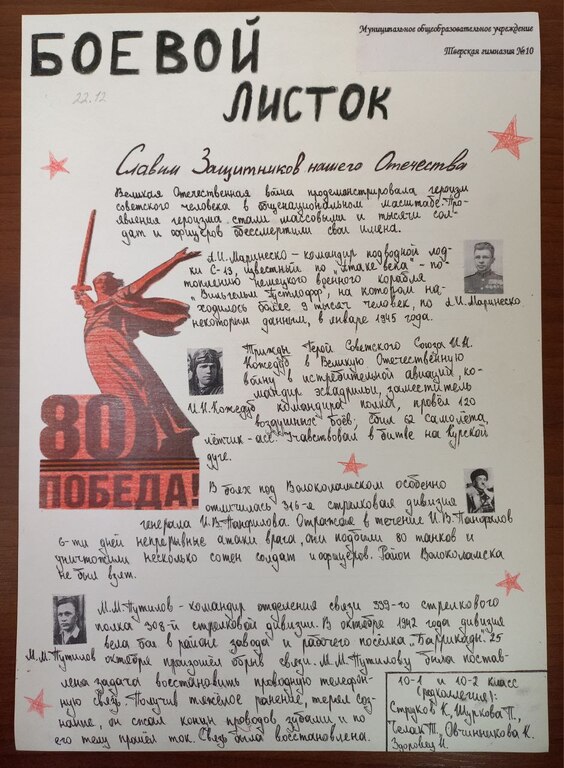 Муниципальное общеобразовательное учреждение
Тверская гимназия №10
БОЕВОЙ
ЛИСТОК
22.12
Славим Защитников нашего Отечества
Великая Отечественная война продемонстрировала героизм
советского человека в общенациональном масштабе. Про-
явления героизма стали массовыми и тысячи сол-
дат и офицеров обессмертили свои имена.
А.И. Маринеско - командир подводной лод-
ки С-13, известный по "атаке века" - по-
топлению немецкого военного корабля
"Вильгельм Густлофф", на котором на-
ходилось более 9 тысяч человек, по
некоторым данным, в январе 1945 года.
А.И. Маринеско
Трижды Герой Советского Союза И.Н.
Кожедуб в Великую Отечественную
войну в истребительной авиации, ко-
мандир эскадрильи, заместитель
командира полка, провёл 120
воздушных боёв, сбил 62 самолёта,
лётчик-асс. Учавствовал в битве на Курской
дуге.
И.Н. Кожедуб
80
ПОБЕДА!
В боях под Волоколамском особенно
отличилась 316-я стрелковая дивизия
генерала И.В. Панфилова. Отражая в течение
6-ти дней непрерывные атаки врага, они подбили 80 танков и
уничтожили несколько сотен солдат и офицеров. Район Волоколамска
не был взят.
И.В. Панфилов
М.М. Путилов - командир отделения связи 339-го стрелкового
полка 308-й стрелковой дивизии. В октябре 1942 года дивизия
вела бои в районе завода и рабочего посёлка "Баррикады". 25
октября произошёл обрыв связи. М.М. Путилову была постав-
лена задача восстановить проводную телефон-
ную связь. Получив тяжёлое ранение, теряя соз-
нание, он сжал концы проводов зубами и по
его телу прошёл ток. Связь была восстановлена.
М.М. Путилов
10-1 и 10-2 класс
(редколлегия):
Струков К., Шуркова П.,
Челак Т., Овчинникова К.